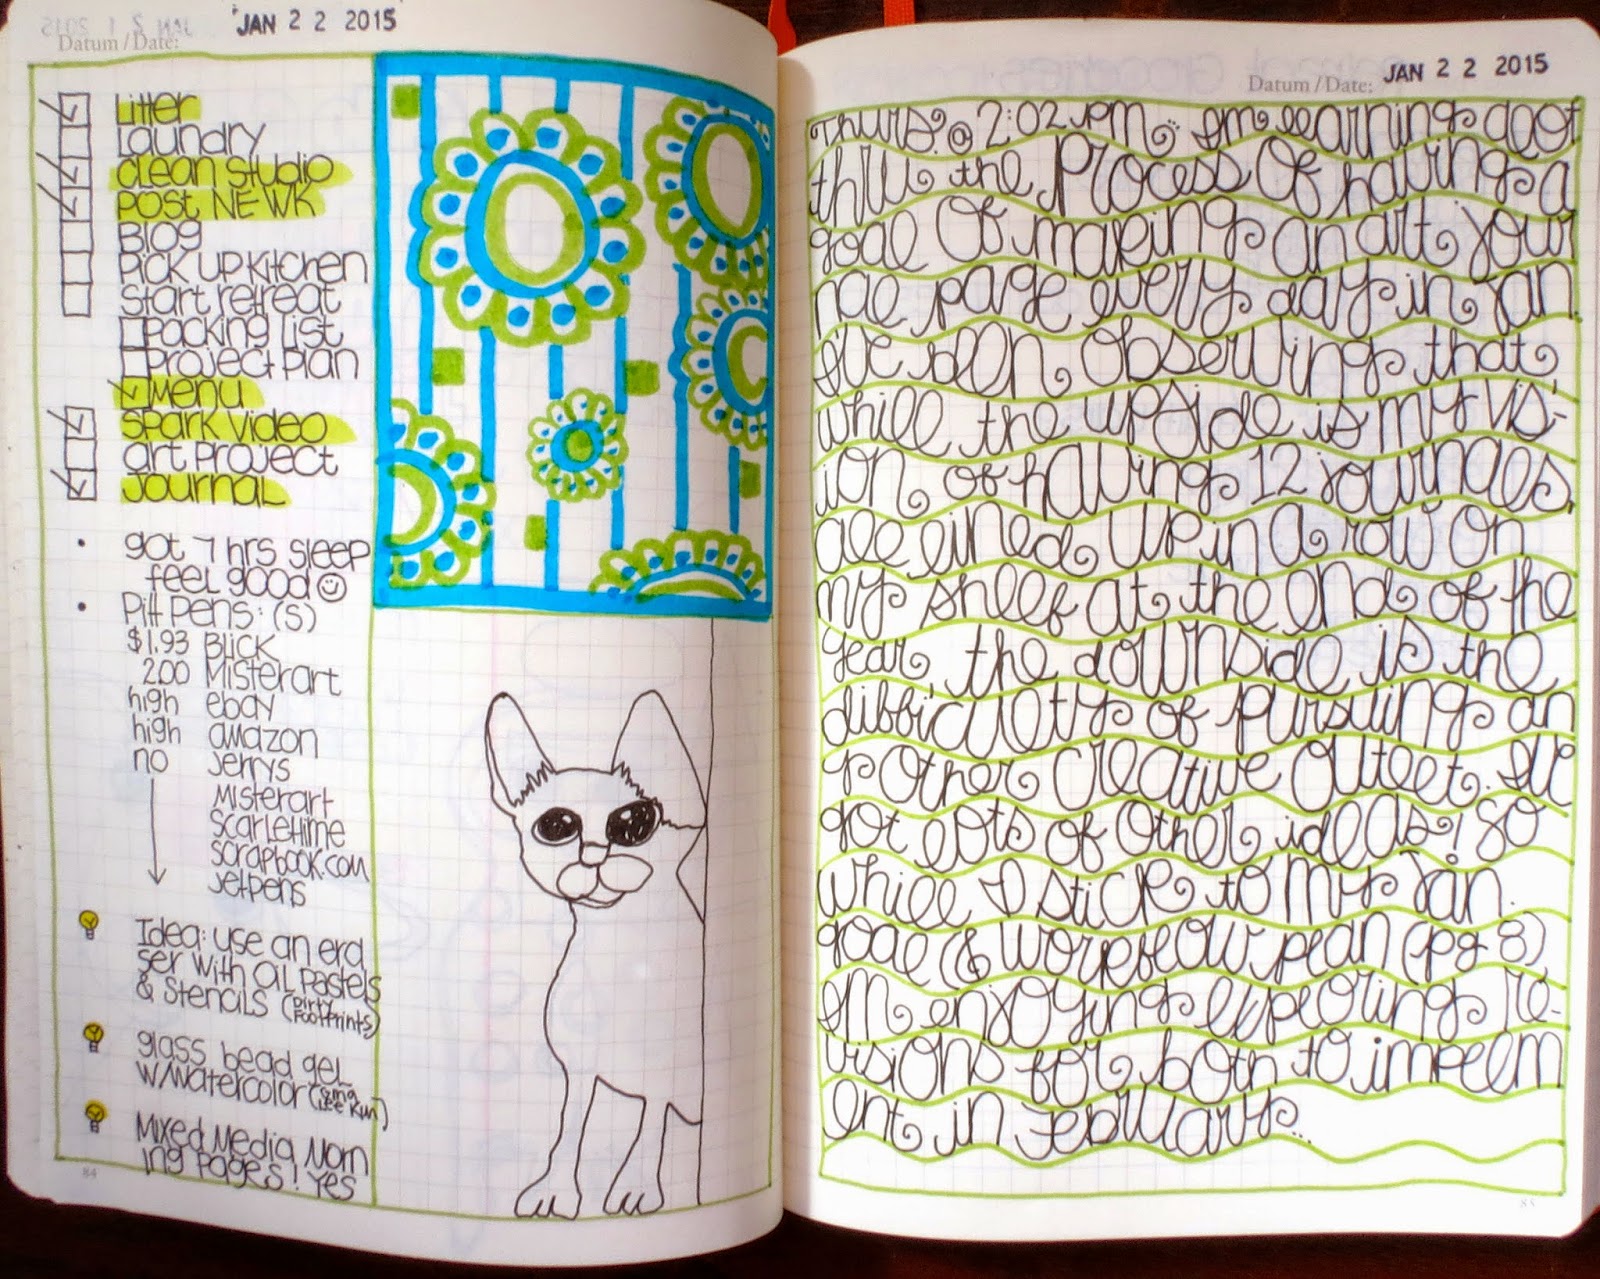 JAN 22 2015
Datum / Date:
Litter
Laundry
Clean Studio
Post NEWK
Blog
Pick up kitchen
Start retreat
Packing List
Project Plan
Menu
Spark Video
art project
Journal
• got 7 hrs sleep
feel good ☺
• Pitt Pens: (S)
$1.93 Blick
2.00 Misterart
high ebay
high amazon
no Jerrys
Misterart
Scarletlime
Scrapbook.com
Jetpens
Idea: use an era
ser with oil pastels
& Stencils (Dirty
Footprints)
glass bead gel
w/watercolor (
Lee Kun)
Mixed Media Morn
ing Pages! Yes
84
JAN 22 2015
Datum / Date:
Thurs. @ 2:02 pm. I'm learning a lot
thru the process of having a
goal of making an art jour
nal page every day in Jan.
I've been observing that,
while the upside is my vis-
ion of having 12 journals,
all lined up in a row on
my shelf at the end of the
year, the downside is the
difficulty of pursuing an
y other creative outlet. I've
got lots of other ideas! So
while I stick to my Jan.
goal (& workflow plan (pg 8)
I'm enjoying exploring re-
visions for both to implem
ent in February...
85